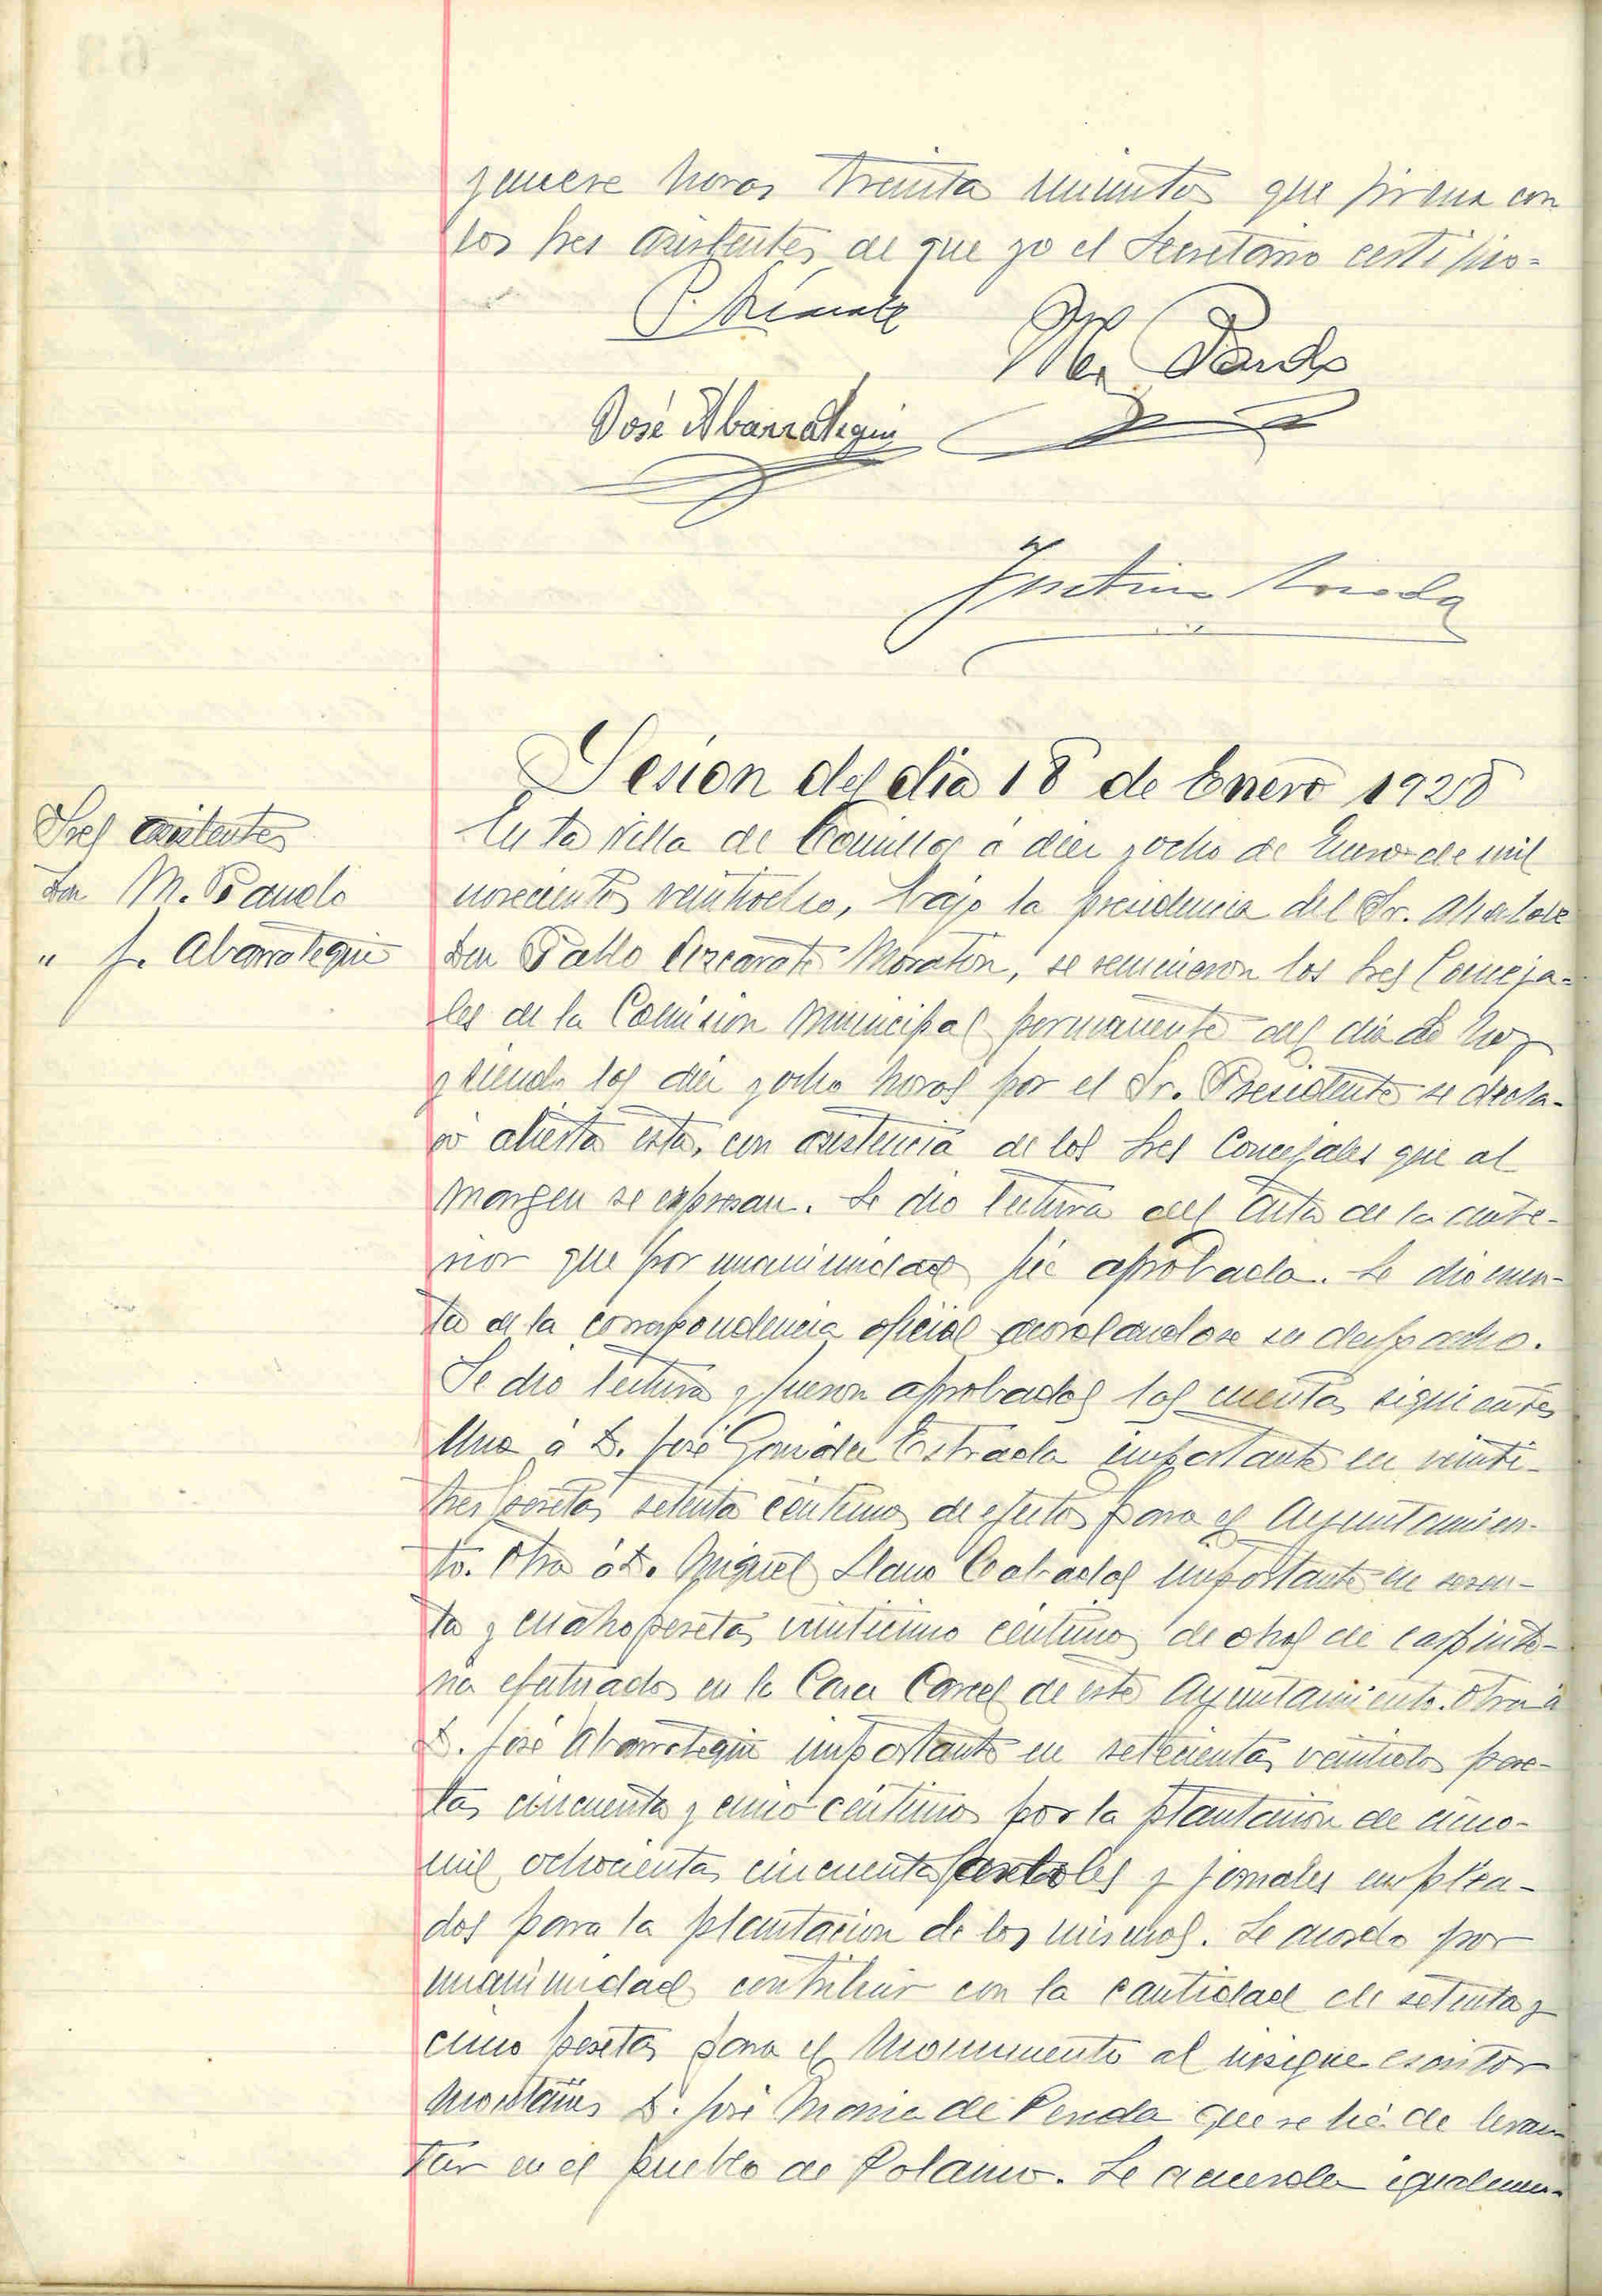 y nueve horas treinta minutos que firma con
los Sres asistentes de que yo el Secretario certifico=
P. Azcarate
M. Pando
José Abarrategui
Sesion del dia 18 de Enero 1928
Sres asistentes
Don M. Pando
" J. Abarrategui
En la Villa de Comillas á diez y ocho de Enero de mil
novecientos veintiocho, bajo la presidencia del Sr. Alcalde
Don Pablo Azcarate Moraton, se reunieron los Sres Conceja=
les de la Comision Municipal permanente del dia de hoy
y siendo las diez y ocho horas por el Sr. Presidente se decla-
ró abierta esta, con asistencia de los Sres Concejales que al
margen se expresan. Se dio lectura del Acta de la ante-
rior que por unanimidad fué aprobada. Se dio cuen-
ta de la correspondencia oficial acordandose su despacho.
Se dio lectura y fueron aprobadas las cuentas siguientes
Una á D. José Gonzalez Estrada importante en veinti-
tres pesetas setenta céntimos de efectos para el Ayuntamien-
to. Otra á D. Miguel Llano Cabados importante en sesen-
ta y cuatro pesetas veinticinco céntimos de obras de carpinte-
ria efectuados en la Casa Carcel de este Ayuntamiento. Otra á
D. José Abarrategui importante en setecientas veintidos pese-
tas cincuenta y cinco céntimos por la plantacion de cinco-
mil ochocientas cincuenta arboles y jornales emplea-
dos para la plantacion de los mismos. Se acordo por
unanimidad contribuir con la cantidad de setenta y
cinco pesetas para el Monumento al insigne escritor
Montañes D. José Maria de Pereda que se há de levan-
tar en el pueblo de Polanco. Se acuerda igualmen-